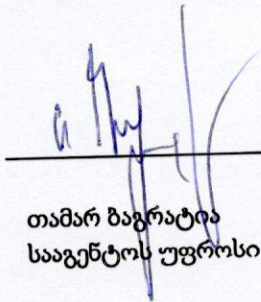 თამარ ბაგრატია
სააგენტოს უფროსი